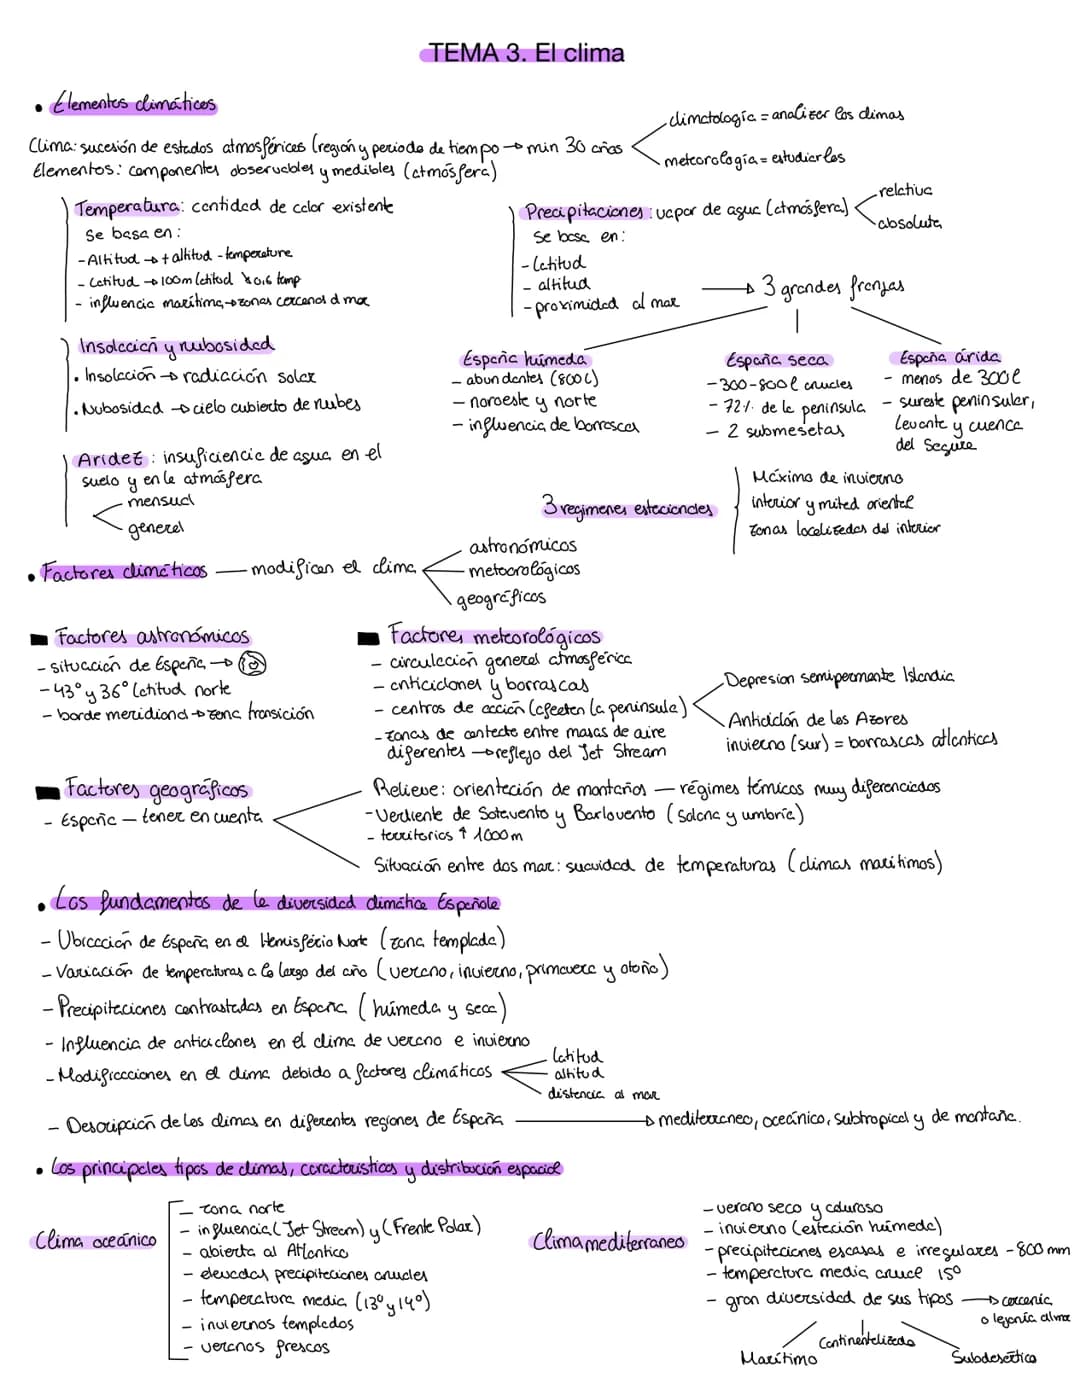 TEMA 3. El clima
• Elementos climáticos
Clima: sucesión de estados atmosféricos (región y periodo de tiempo → min 30 años
climatología = analizar los climas
meteorología = estudiarlos
Elementos: componentes observables y medibles (atmósfera)
Temperatura: cantidad de calor existente
Se basa en:
- Altitud → + altitud - temperatura
- Latitud → 100m latitud ↘ 0'6 temp
- influencia marítima → zonas cercanas al mar
Precipitaciones: vapor de agua (atmósfera)
relativa
absoluta
Se basa en:
- latitud
- altitud
- proximidad al mar
→ 3 grandes franjas
Insolación y nubosidad
• Insolación → radiación solar
• Nubosidad → cielo cubierto de nubes
España húmeda
- abundantes (800l)
- noroeste y norte
- influencia de borrascas
España seca
- 300-800l anuales
- 72% de la península
- 2 submesetas
España árida
- menos de 300l
- sureste peninsular,
levante y cuenca
del Segura
Aridez: insuficiencia de agua en el
suelo y en la atmósfera
mensual
general
3 regimenes estacionales
Máximo de invierno
interior y mitad oriental
zonas localizadas del interior
• Factores climáticos — modifican el clima
astronómicos
meteorológicos
geográficos
Factores astronómicos
- situación de España →
- 43° y 36° latitud norte
- borde meridional → zona transición
Factores meteorológicos
- circulación general atmosférica
- anticiclones y borrascas
- centros de acción (afectan la península)
Depresion semipermante Islandia
Anticiclón de los Azores
invierno (sur) = borrascas atlánticas
- zonas de contacto entre masas de aire
diferentes → reflejo del Jet Stream
Factores geográficos
- España — tener en cuenta
Relieve: orientación de montañas — régimes térmicos muy diferenciados
- Vertiente de Sotavento y Barlovento (Solana y umbría)
- territorios ↑ 1000m
Situación entre dos mar: suavidad de temperaturas (climas marítimos)
• Los fundamentos de la diversidad climática Española
- Ubicación de España en el Hemisfério Norte (zona templada)
- Variación de temperaturas a lo largo del año (verano, invierno, primavera y otoño)
- Precipitaciones contrastadas en España (húmeda y seca)
- Influencia de anticiclones en el clima de verano e invierno
- Modificaciones en el clima debido a factores climáticos
latitud
altitud
distancia al mar
- Descripción de los climas en diferentes regiones de España → mediterraneo, oceánico, subtropical y de montaña.
• Los principales tipos de climas, caracteristicas y distribución espacial
Clima oceánico
- zona norte
- influencia (Jet Stream) y (Frente Polar)
- abierta al Atlantico
- elevadas precipitaciones anuales
- temperatura media (13° y 14°)
- inviernos templados
- veranos frescos
Clima mediterraneo
- verano seco y caluroso
- invierno (estación húmeda)
- precipitaciones escasas e irregulares - 800 mm
- temperatura media anual 15°
- gran diversidad de sus tipos → cercanía
o lejanía al mar
Marítimo
Continentalizado
Subdesértico